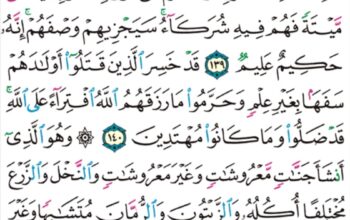 مَّيْتَةً فَهُمْ فِيهِ شُرَكَآءُ سَيَجْزِيهِمْ وَصْفَهُمْ إِنَّهُۥ
حَكِيمٌ عَلِيمٌ ١٣٩ قَدْ خَسِرَ ٱلَّذِينَ قَتَلُوٓا۟ أَوْلَٰدَهُمْ
سَفَهًۢا بِغَيْرِ عِلْمٍ وَحَرَّمُوا۟ مَا رَزَقَهُمُ ٱللَّهُ ٱفْتِرَآءً عَلَى ٱللَّهِ
قَدْ ضَلُّوا۟ وَمَا كَانُوا۟ مُهْتَدِينَ ١٤٠ ۞ وَهُوَ ٱلَّذِىٓ
أَنشَأَ جَنَّٰتٍ مَّعْرُوشَٰتٍ وَغَيْرَ مَعْرُوشَٰتٍ وَٱلنَّخْلَ وَٱلزَّرْعَ
مُخْتَلِفًا أُكُلُهُۥ وَٱلزَّيْتُونَ وَٱلرُّمَّانَ مُتَشَٰبِهًا وَغَيْرَ